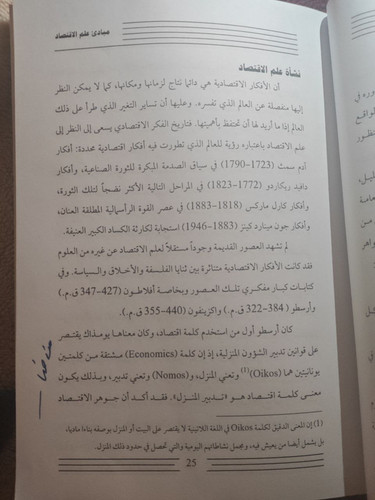 مبادئ علم الاقتصاد
نشأة علم الاقتصاد
أن الأفكار الاقتصادية هي دائما نتاج لزمانها ومكانها، كما لا يمكن النظر
إليها منفصلة عن العالم الذي تفسره. وعليها أن تساير التغير الذي طرأ على ذلك
العالم إذا ما أريد لها أن تحتفظ بأهميتها. فتاريخ الفكر الاقتصادي يسعى إلى النظر إلى
علم الاقتصاد باعتباره رؤية للعالم الذي تطورت فيه أفكار اقتصادية محددة: أفكار
آدم سمث (1723–1790) في سياق الصدمة المبكرة للثورة الصناعية، وأفكار
دافيد ريكاردو (1772–1823) في المراحل التالية الأكثر نضجاً لتلك الثورة،
وأفكار كارل ماركس (1818–1883) في عصر القوة الرأسمالية المطلقة العنان،
وأفكار جون مينارد كينز (1883–1946) استجابة لكارثة الكساد الكبير العنيفة.
لم تشهد العصور القديمة وجوداً مستقلاً لعلم الاقتصاد عن غيره من العلوم
فقد كانت الأفكار الاقتصادية متناثرة بين ثنايا الفلسفة والأخلاق والسياسة. وفي
كتابات كبار مفكري تلك العصور وبخاصة أفلاطون (427–347 ق.م.)
وأرسطو (384–322 ق.م.) واكزينفون (440–355 ق.م.).
كان أرسطو أول من استخدم كلمة اقتصاد، وكان معناها يومذاك يقتصر
على قوانين تدبير الشؤون المنزلية، إذ إن كلمة (Economics) مشتقة من كلمتين
يونانيتين هما (Oikos)(1) وتعني المنزل، و(Nomos) وتعني تدبير، وبذلك يكون
معنى كلمة اقتصاد هو «تدبير المنزل». فقد أكد أن جوهر الاقتصاد
(1) إن المعنى الدقيق لكلمة Oikos في اللغة اللاتينية لا يقتصر على البيت أو المنزل بوصفه بناءا ماديا،
بل يشمل أيضا من يعيش فيه، ومجمل نشاطاتهم اليومية والتي تحصل في حدود ذلك المنزل.
25